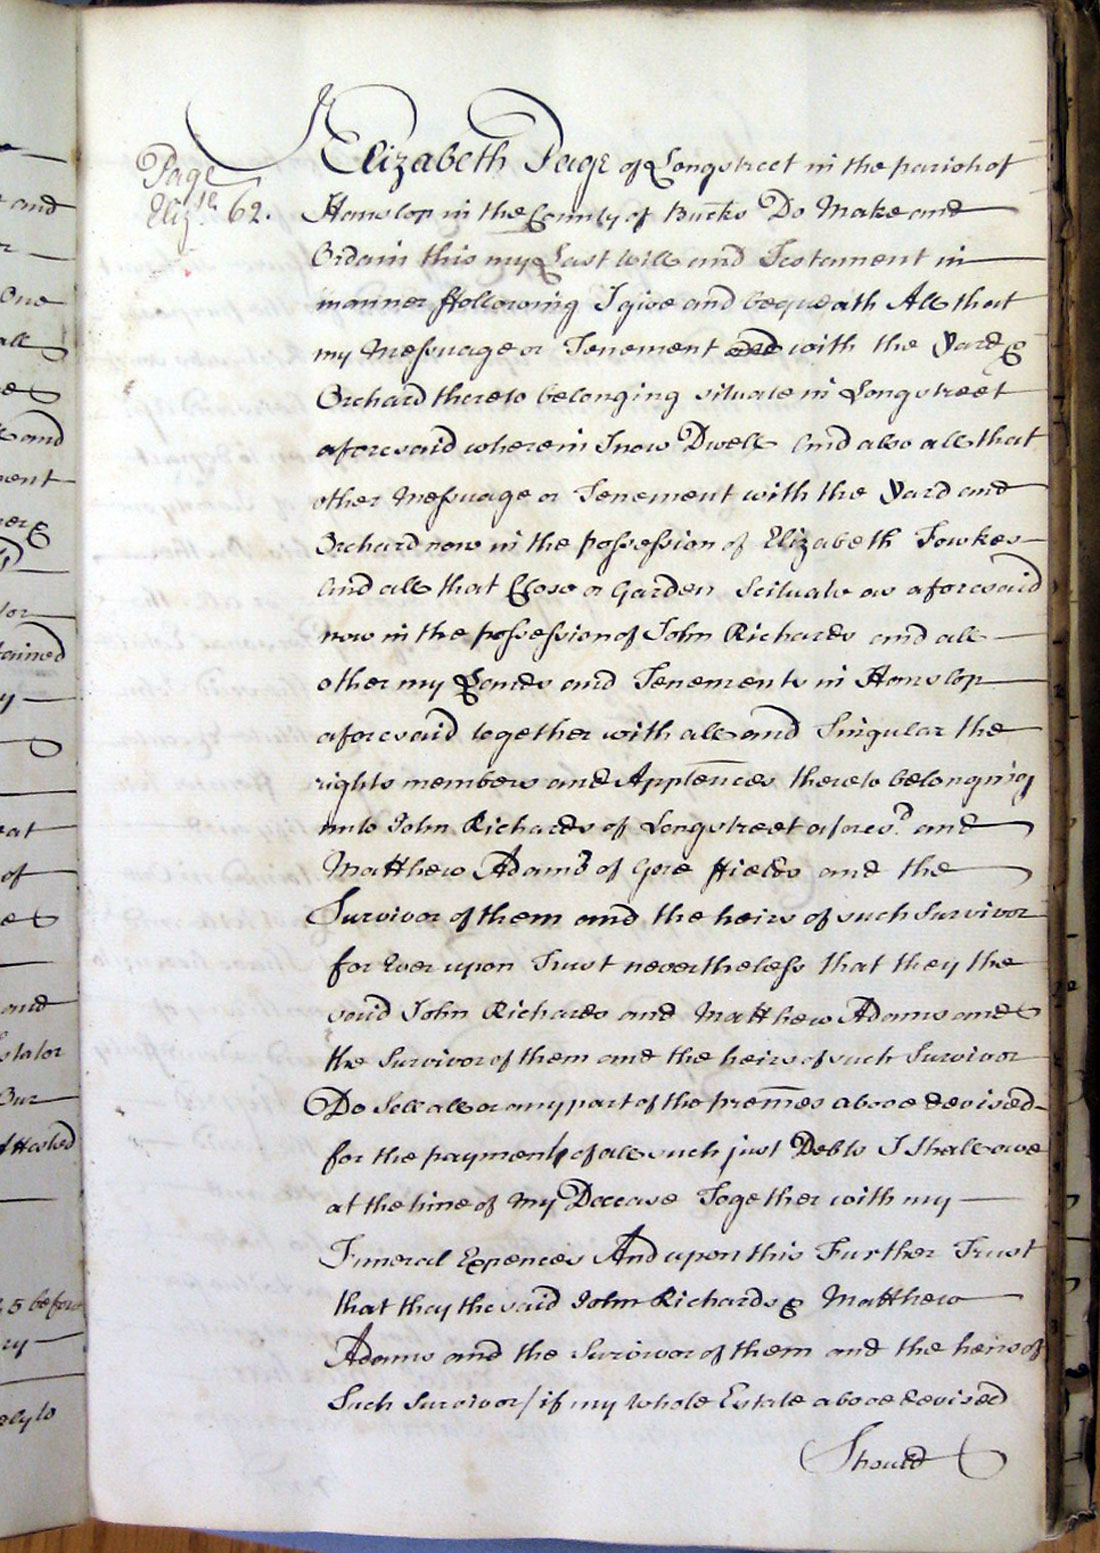 Page
Eliz.th 62.
I Elizabeth Page of Longstreet in the parish of
Hanslop in the County of Bucks Do Make and
Ordain this my Last Will and Testament in
manner ffollowing I give and bequeath All that
my Messuage or Tenement and with the Yard &
Orchard thereto belonging situate in Longstreet
aforesaid wherein I now Dwell And also all that
other Messuage or Tenement with the Yard and
Orchard now in the possession of Elizabeth Fowkes
And all that Close or Garden Scituate as aforesaid
now in the possession of John Richards and all
other my Lands and Tenements in Hanslop
aforesaid together with all and Singular the
rights members and Apptences thereto belonging
unto John Richards of Longstreet afores.d and
Matthew Adams of Gore ffields and the
Survivor of them and the heirs of such Survivor
for Ever upon Trust nevertheless that they the
said John Richards and Matthew Adams and
the Survivor of them and the heirs of such Survivor
Do Sell all or any part of the premes above devised
for the payment of all such just Debts I Shall owe
at the time of My Decease Together with my
Funeral Expences And upon this Further Trust
that they the said John Richards & Matthew
Adams and the Survivor of them and the heirs of
Such Survivor / if my Whole Estate above devised
Should
and
One
all
and
ment
tained
eat
of
and
stator
Our
Attested
, 5 before
ry
ely to